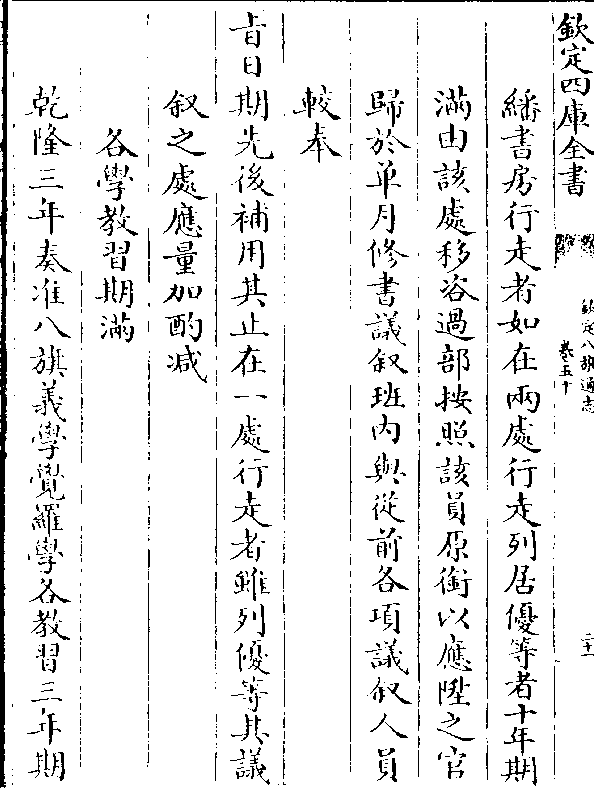 欽定四庫全書
欽定八旗通志
卷五十
二十一
繙書房行走者如在兩處行走列居優等者十年期
滿由該處移咨過部按照該員原銜以應陞之官
歸於單月修書議叙班内與從前各項議叙人員
較奉
旨日期先後補用其止在一處行走者雖列優等其議
叙之處應量加酌减
各學教習期滿
乾隆三年奏准八旗義學覺羅學各教習三年期